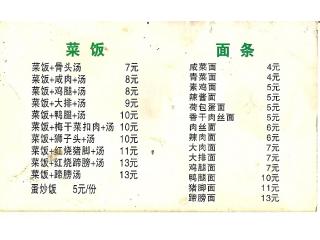 菜饭
菜饭+骨头汤 7元
菜饭+咸肉+汤 8元
菜饭+鸡腿+汤 8元
菜饭+大排+汤 9元
菜饭+鸭腿+汤 10元
菜饭+梅干菜扣肉+汤 10元
菜饭+狮子头+汤 10元
菜饭+红烧猪脚+汤 11元
菜饭+红烧蹄膀+汤 13元
菜饭+蹄膀汤 13元
蛋炒饭 5元/份
面条
咸菜面 4元
青菜面 4元
素鸡面 5元
辣酱面 5元
荷包蛋面 5元
香干肉丝面 6元
肉丝面 6元
辣肉面 6元
大肉面 7元
大排面 7元
鸡腿面 7元
鸭腿面 10元
猪脚面 11元
蹄膀面 13元